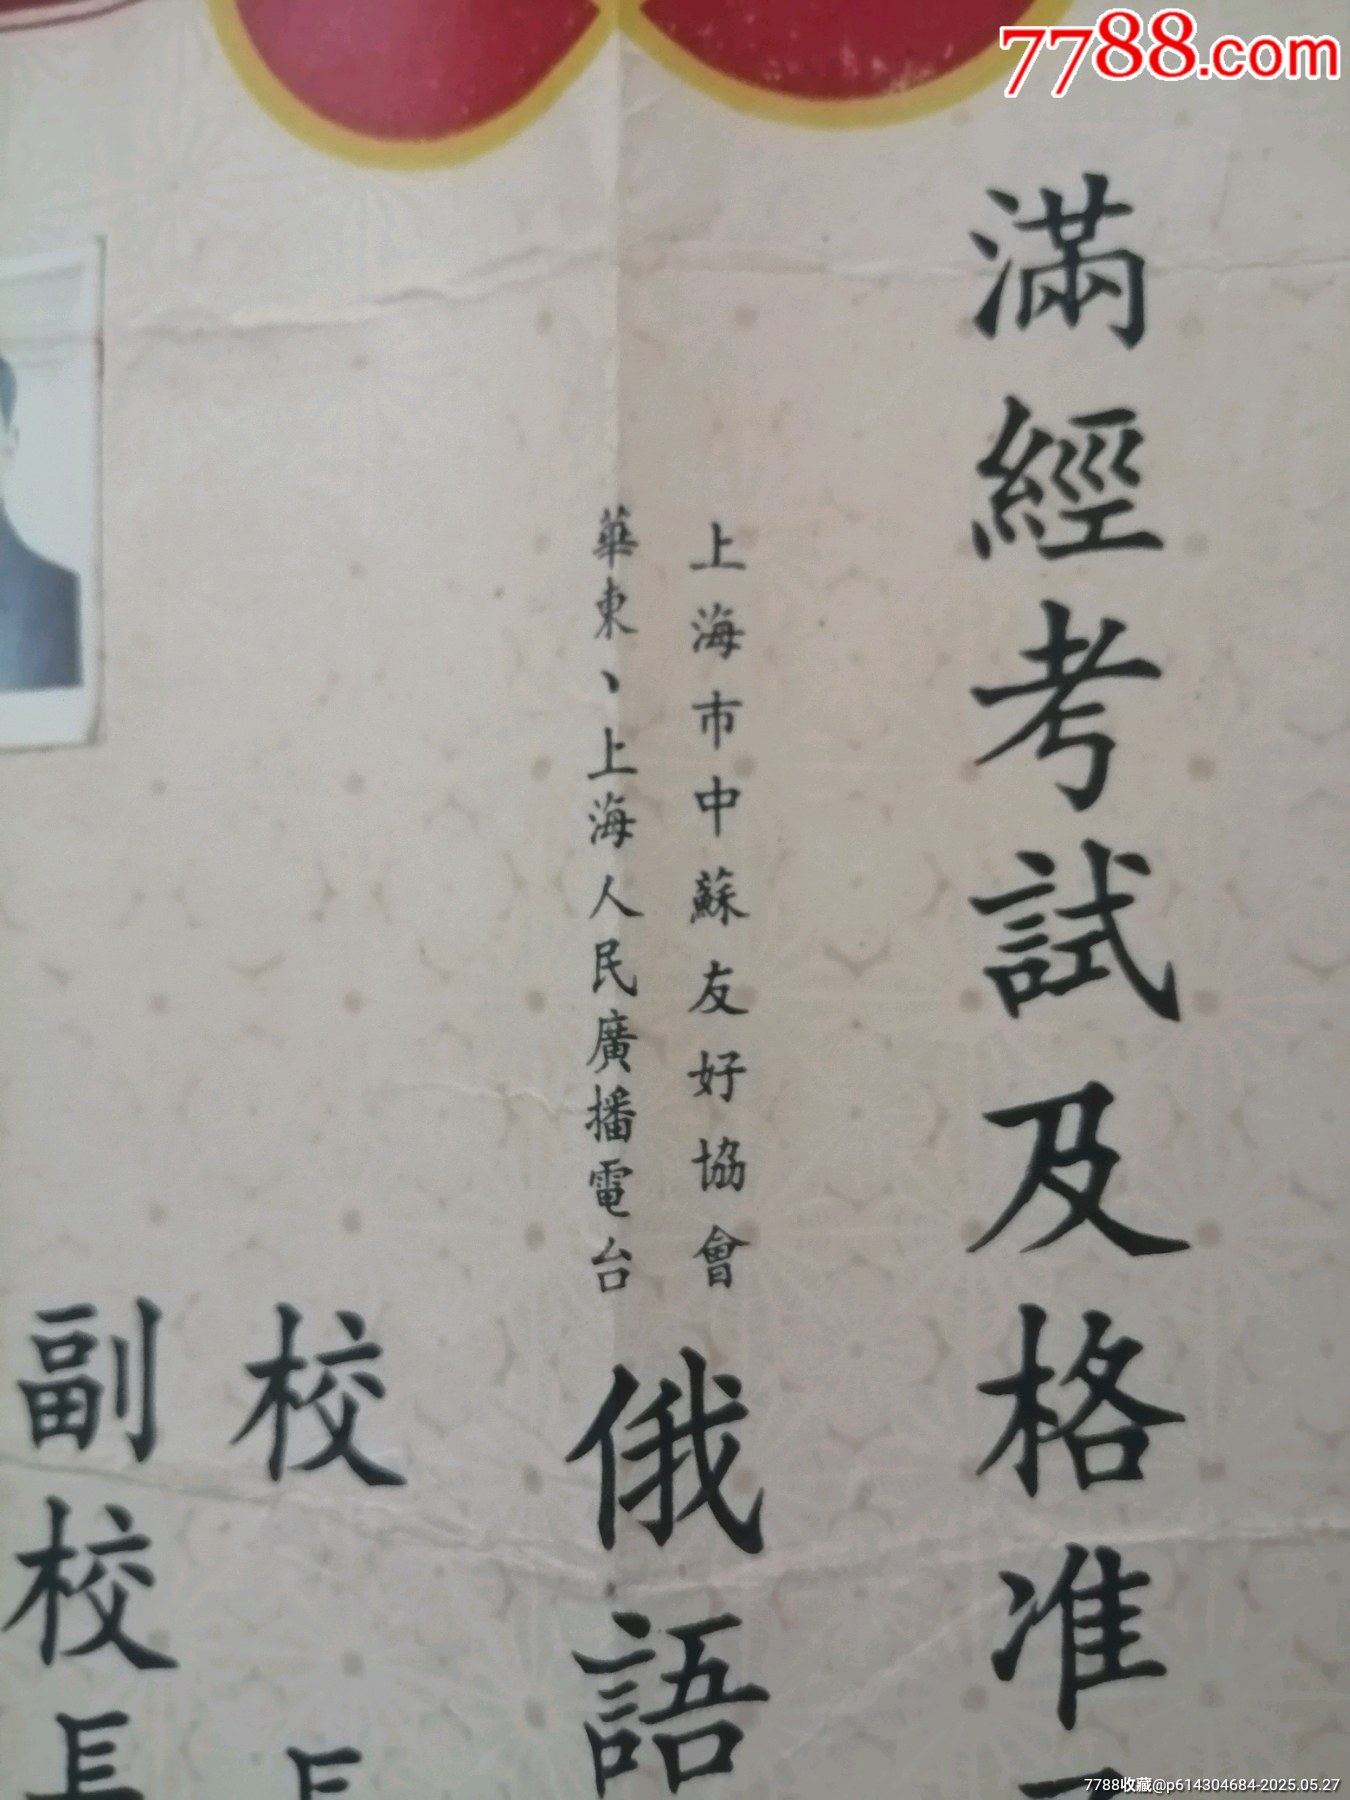 7788.com
滿經考試及格准
上海市中蘇友好協會
華東、上海人民廣播電台
俄語
校長
副校長
7788收藏@p614304684-2025.05.27